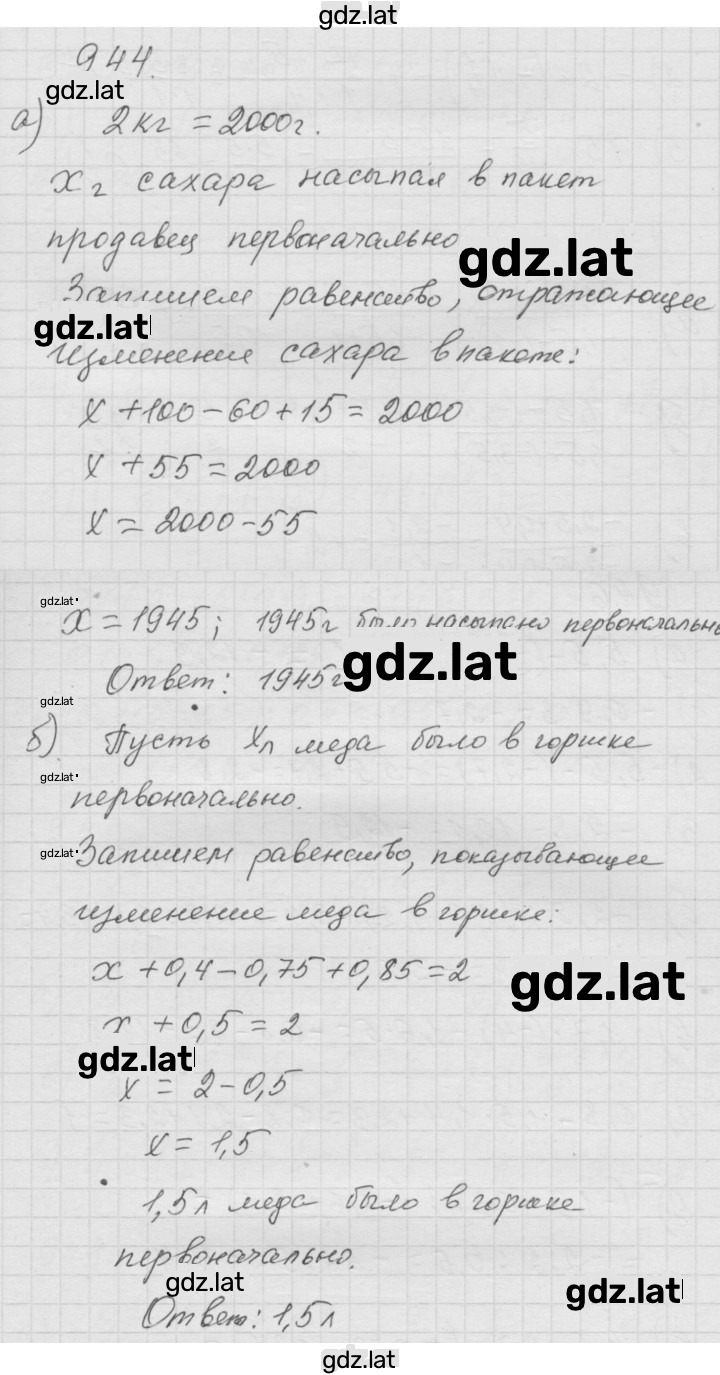 gdz.lat
944.
gdz.lat
а) 2кг = 2000г.
х г сахара насыпал в пакет
продавец первоначально
gdz.lat
Запишем равенство, отражающее
gdz.lat
изменение сахара в пакете:
х + 100 - 60 + 15 = 2000
х + 55 = 2000
х = 2000 - 55
gdz.lat
х = 1945; 1945г было насыпано первоначально
gdz.lat
Ответ: 1945г
gdz.lat
б) Пусть х л меда было в горшке
gdz.lat
первоначально.
gdz.lat
Запишем равенство, показывающее
изменение меда в горшке:
х + 0,4 - 0,75 + 0,85 = 2
gdz.lat
х + 0,5 = 2
gdz.lat
х = 2 - 0,5
х = 1,5
1,5 л меда было в горшке
первоначально.
gdz.lat
gdz.lat
Ответ: 1,5 л
gdz.lat